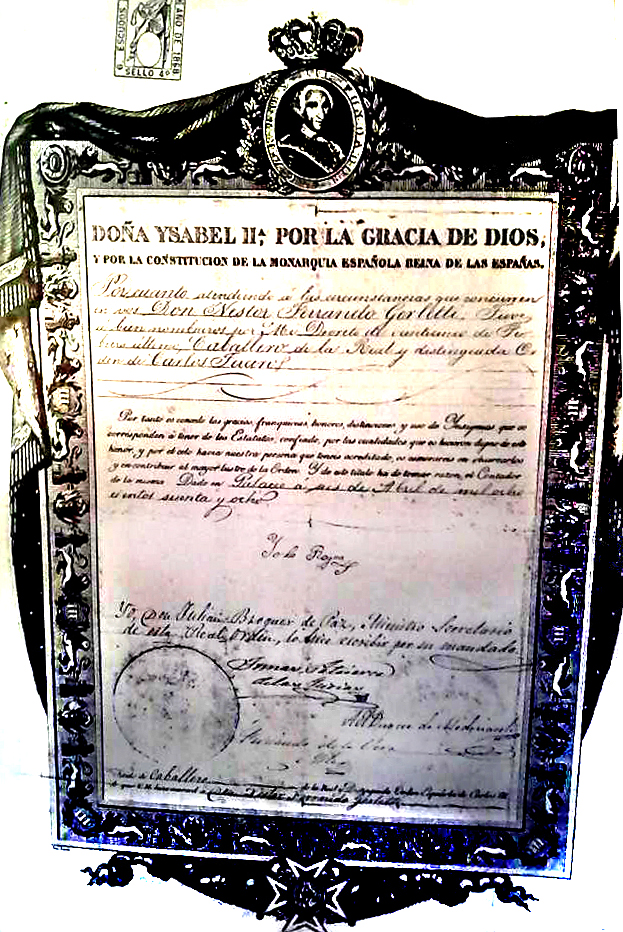 ESCUDOS
AÑO DE 1868
SELLO 4º
DOÑA YSABEL IIª POR LA GRACIA DE DIOS,
Y POR LA CONSTITUCION DE LA MONARQUIA ESPAÑOLA REINA DE LAS ESPAÑAS.
Por cuanto atendiendo á las circunstancias que concurren
en vos Don Nestor Ferrando Tuve
á bien nombraros por Mi Decreto de de Fe-
brero último Caballero de la Real y distinguida Or-
den de Carlos
Por tanto os concedo las gracias, franquicias, honores, distinciones, y uso de Ynsignias que os
corresponden á tenor de los Estatutos, confiado, por las cualidades que os hicieron digno de este
honor, y por el celo hacia nuestra persona que teneis acreditado, os esmerareis en
y en contribuir al mayor lustre de la Orden. Y de este título ha de tomar razon, el Contador
de la misma. Dado en Palacio á seis de Abril de mil ocho
cientos sesenta y ocho
Yo la Reyna
Yo, Don Julian Broguer de Paz, Ministro Secretario
de esta Real Orden, lo hice escribir por su mandado.
El Duque de
de Caballero de la Real y Distinguida Orden Española de Carlos III